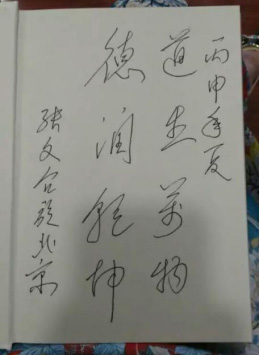 丙申年夏
道生萬物
德润乾坤
张文台题北京